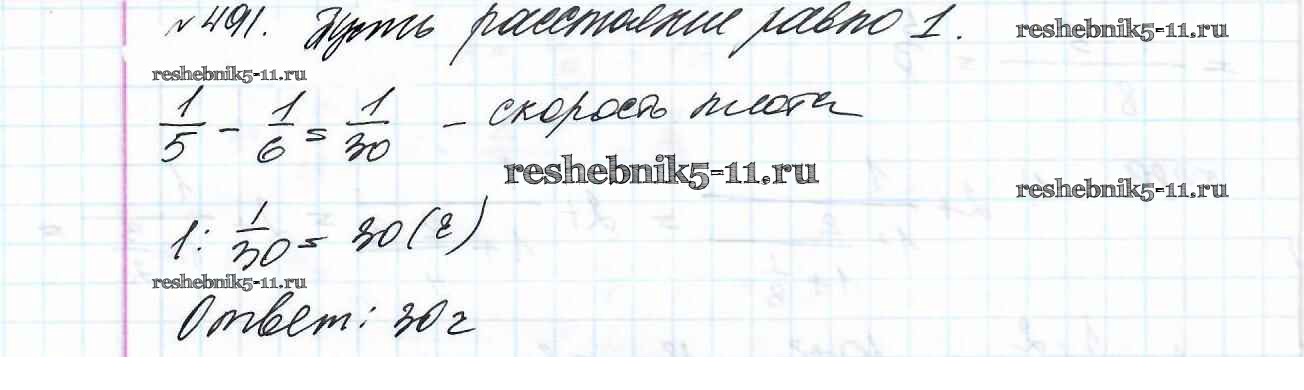 №491. Пусть расстояние равно 1.
reshebnik5-11.ru
reshebnik5-11.ru
1/5 - 1/6 = 1/30 - скорость плота
reshebnik5-11.ru
reshebnik5-11.ru
1: 1/30 = 30 (ч)
reshebnik5-11.ru
Ответ: 30 ч